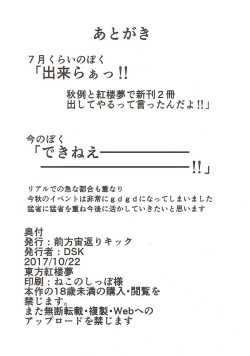 あとがき
７月くらいのぼく
「出来らぁっ!!
秋例と紅楼夢で新刊２冊
出してやるって言ったんだよ!!」
今のぼく
「できねえ――――――
――――――――――!!」
リアルでの急な都合も重なり
今秋のイベントは非常にｇｄｇｄになってしまいました
猛省に猛省を重ね今後に活かしていきたいと思います
奥付
発行：前方宙返りキック
発行者：DSK
2017/10/22
東方紅楼夢
印刷：ねこのしっぽ様
本作の18歳未満の購入・閲覧を
禁じます。
また無断転載・複製・Webへの
アップロードを禁じます